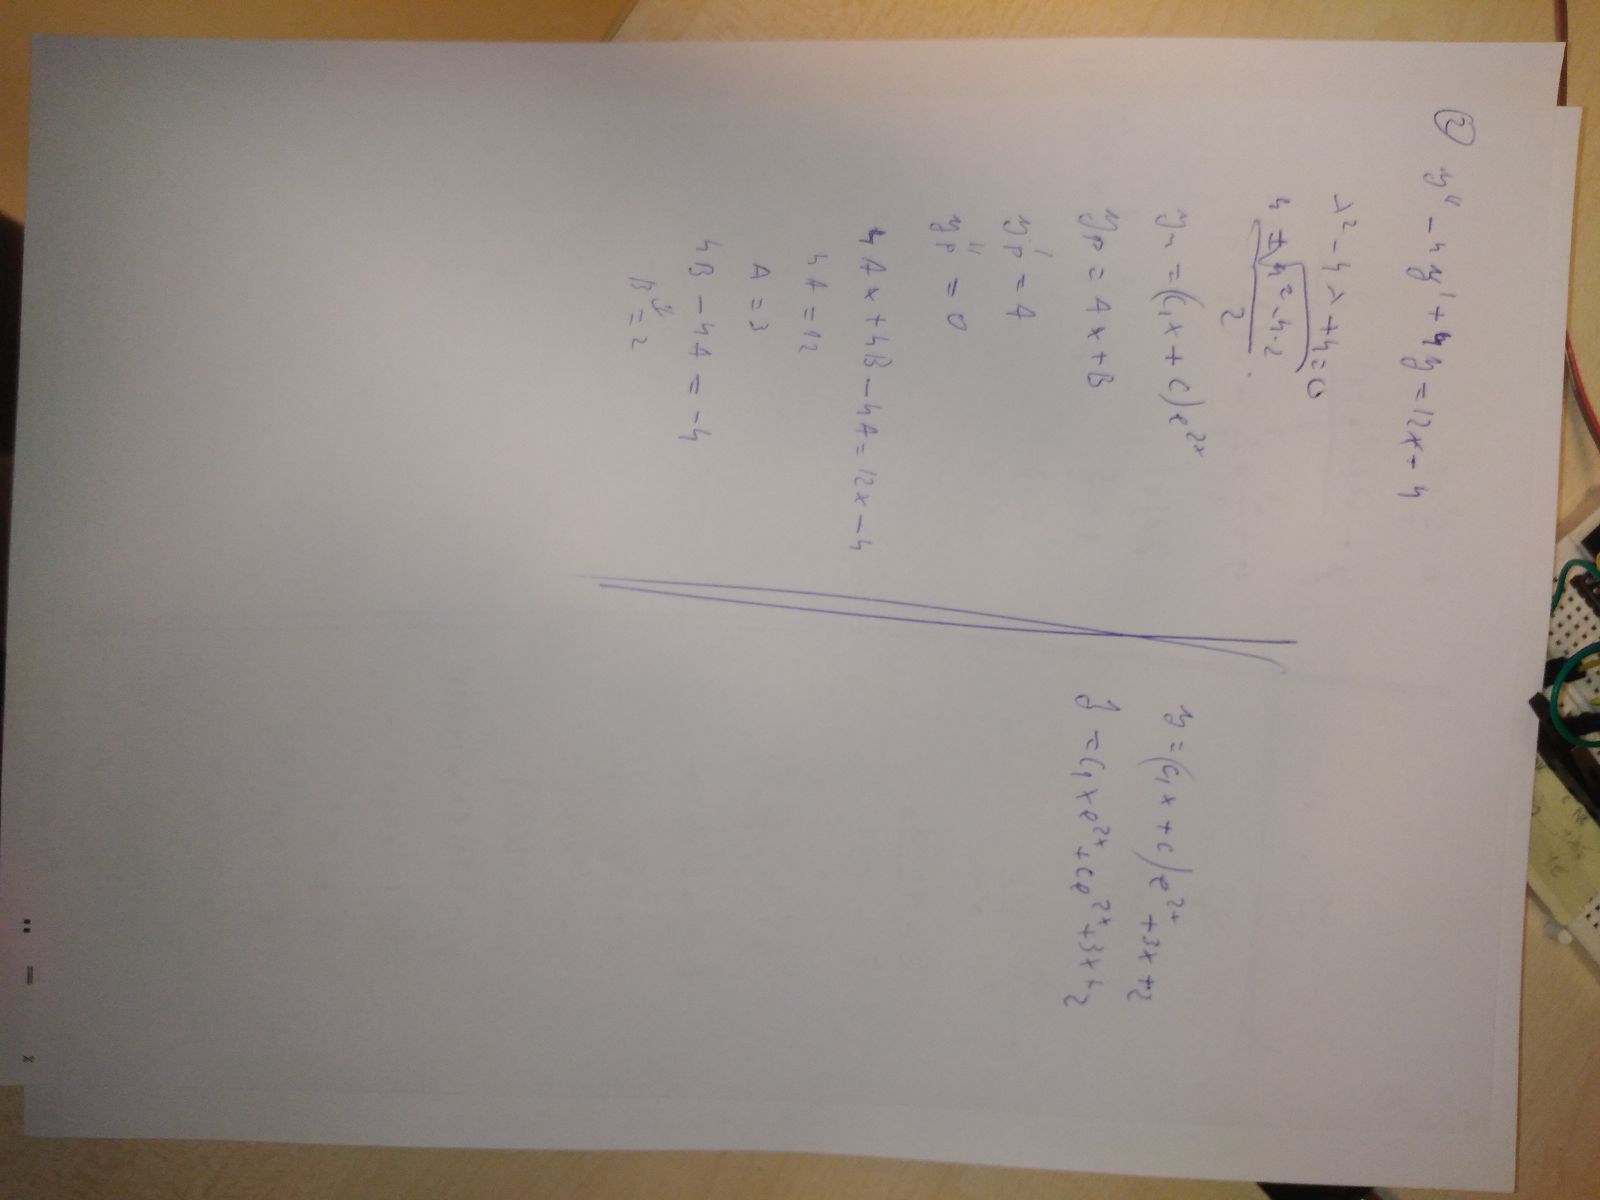 ② y'' - 4y' + 4y = 12x - 4
λ² - 4λ + 4 = 0
4 ± √4² - 4·2
2
yₙ = (C₁x + C)e²ˣ
yp = Ax + B
yp' = A
yp'' = 0
4Ax + 4B - 4A = 12x - 4
4A = 12
A = 3
4B - 4A = -4
B = 2
y = (C₁x + C)e²ˣ + 3x + 2
y = C₁xe²ˣ + Ce²ˣ + 3x + 2